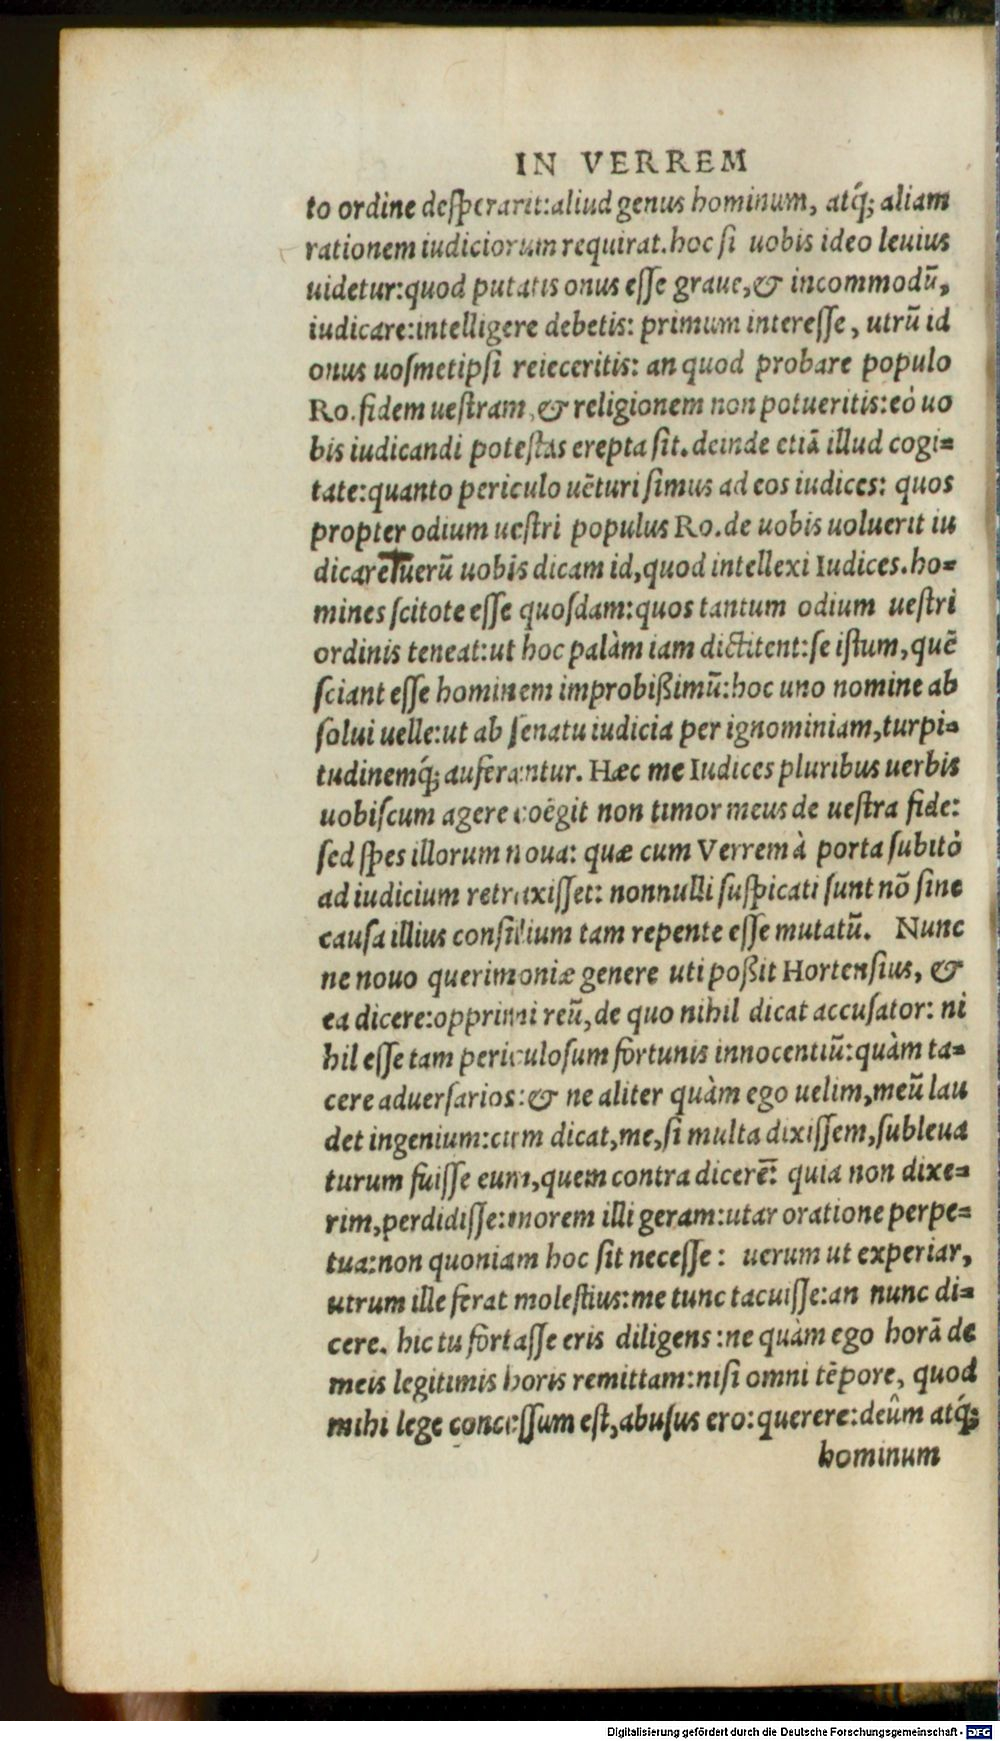 IN VERREM
to ordine desperarit:aliud genus hominum, atq́; aliam
rationem iudiciorum requirat.hoc si uobis ideo leuius
uidetur:quod putatis onus esse graue,& incommodū,
iudicare:intelligere debetis: primum interesse, utrū id
onus uosmetipsi reieceritis: an quod probare populo
Ro.fidem uestram,& religionem non potueritis:eò uo
bis iudicandi potestas erepta sit.deinde etiā illud cogi=
tate:quanto periculo uēturi simus ad eos iudices: quos
propter odium uestri populus Ro.de uobis uoluerit iu
dicare Tuerū uobis dicam id,quod intellexi Iudices.ho=
mines scitote esse quosdam:quos tantum odium uestri
ordinis teneat:ut hoc palàm iam dictitent:se istum,quē
sciant esse hominem improbißimū:hoc uno nomine ab
solui uelle:ut ab senatu iudicia per ignominiam,turpi=
tudinemq́; auferantur. Hæc me Iudices pluribus uerbis
uobiscum agere coëgit non timor meus de uestra fide:
sed spes illorum noua: quæ cum Verrem à porta subitò
ad iudicium retraxisset: nonnulli suspicati sunt nō sine
causa illius consilium tam repente esse mutatū. Nunc
ne nouo querimoniæ genere uti poßit Hortensius, &
ea dicere:opprimi reū,de quo nihil dicat accusator: ni
hil esse tam periculosum fortunis innocentiū:quàm ta=
cere aduersarios:& ne aliter quàm ego uelim,meū lau
det ingenium:cum dicat,me,si multa dixissem,subleua
turum fuisse eum,quem contra dicerē: quia non dixe=
rim,perdidisse:morem illi geram:utar oratione perpe=
tua:non quoniam hoc sit necesse: uerum ut experiar,
utrum ille ferat molestius:me tunc tacuisse:an nunc di=
cere. hic tu fortasse eris diligens:ne quàm ego horā de
meis legitimis horis remittam:nisi omni tēpore, quod
mihi lege concessum est,abusus ero:querere:deûm atq́;
hominum
Digitalisierung gefördert durch die Deutsche Forschungsgemeinschaft - DFG